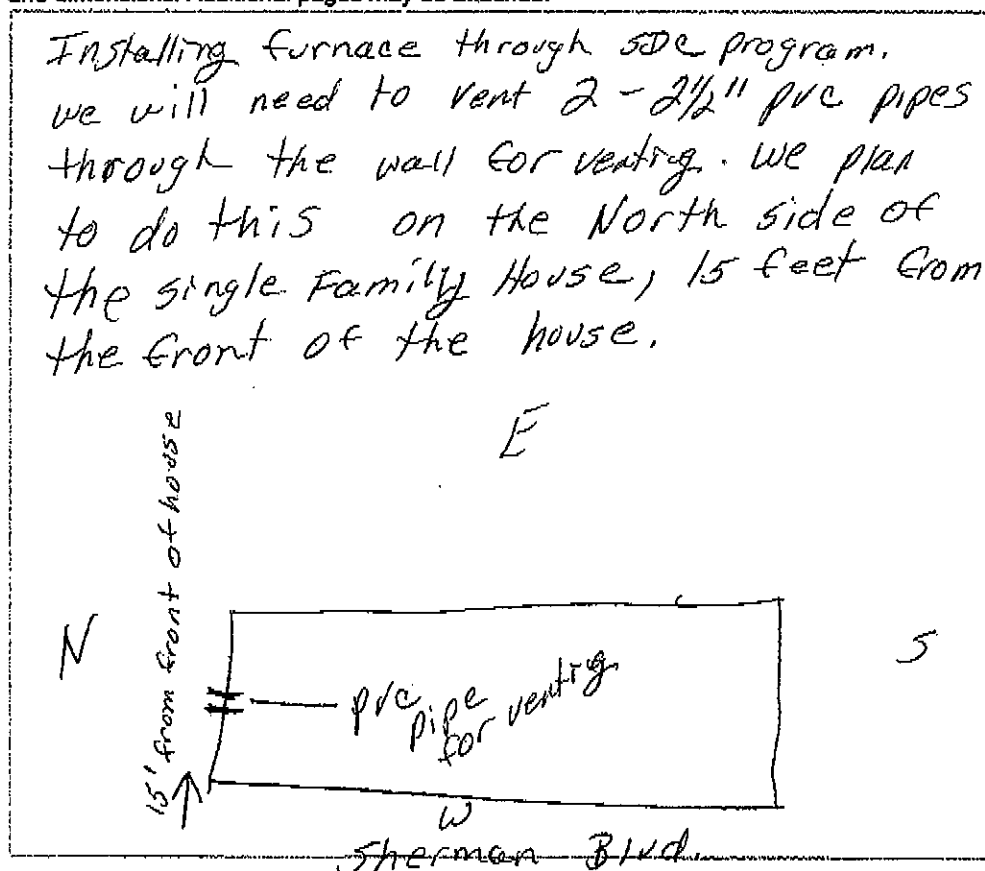 Installing furnace through SDC program.
we will need to vent 2 - 2½" pvc pipes
through the wall for venting. We plan
to do this on the North side of
the single Family House, 15 feet from
the front of the house.
E
15' from front of house
N
S
pvc
pipe
for venting
W
Sherman Blvd.